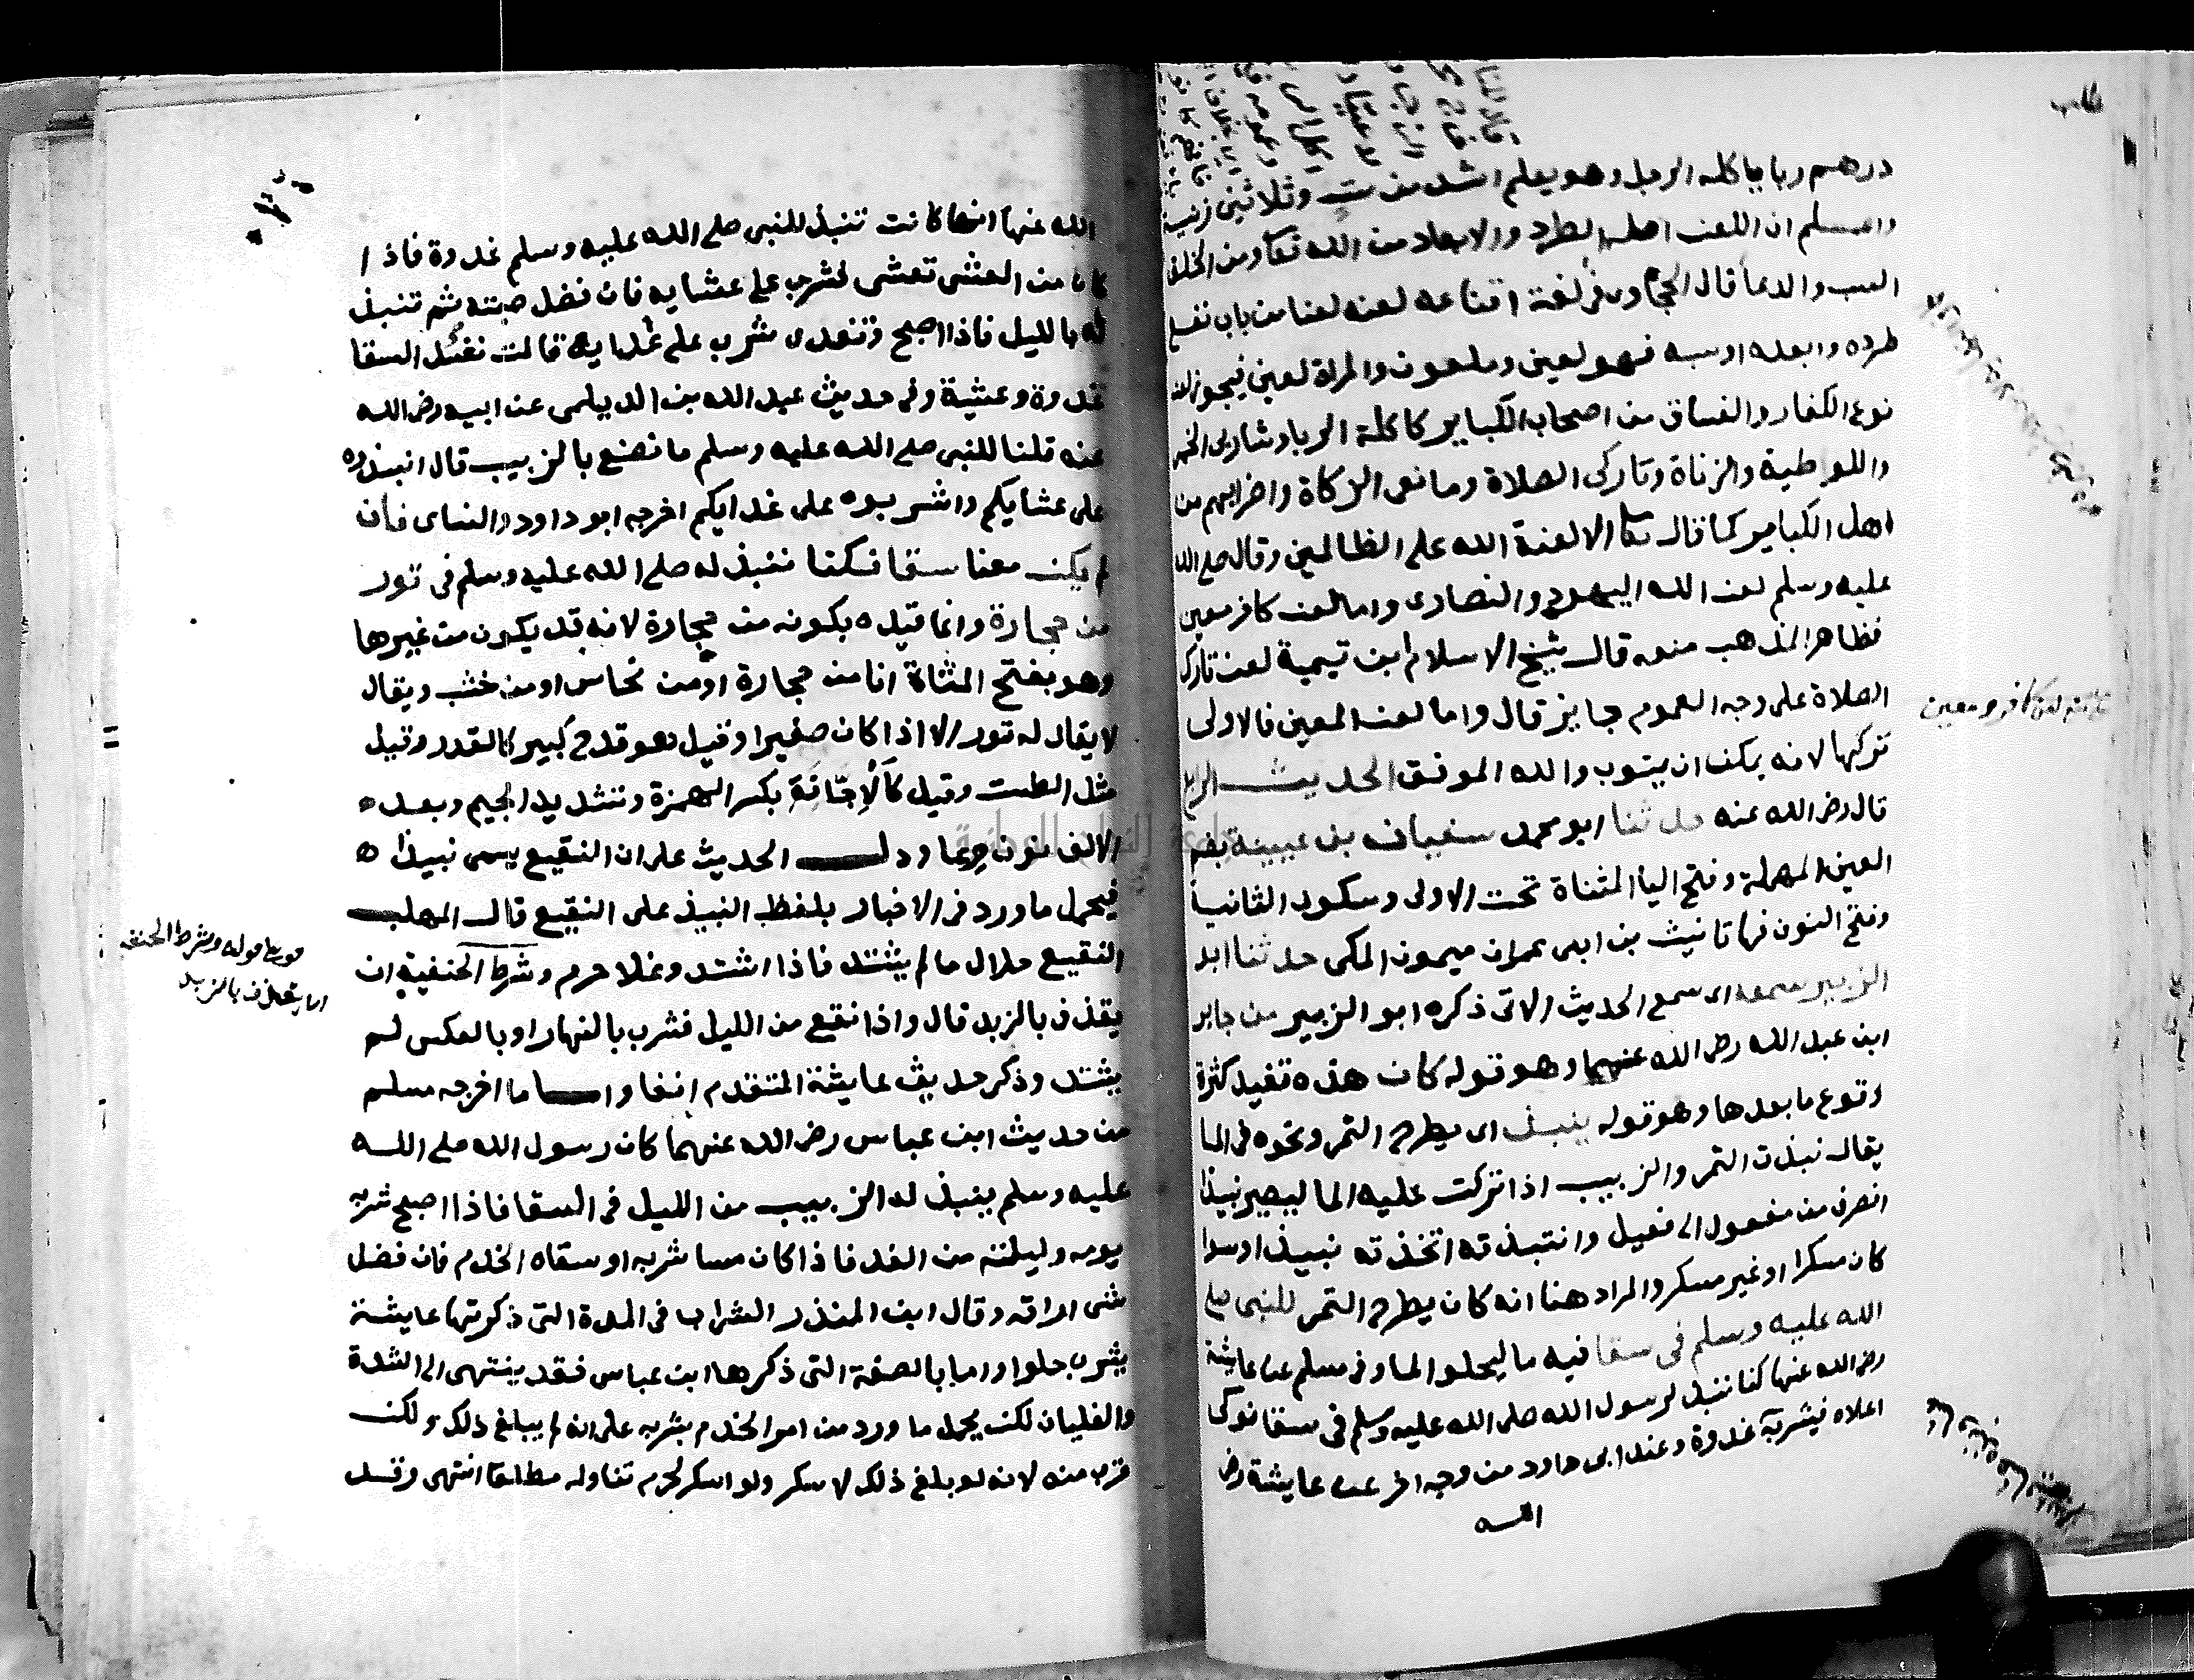 درهم ربا ياكله الرجل وهو يعلم اشد من ست وثلاثين زنية
واعلم ان اللعن اصله الطرد والابعاد من الله تعا ومن الخلق
السب والدعا قال الحجاوى فى لغة اقناعه لعنه لعنا من باب نفع
طرده وابعده اوسبه فهو لعين وملعون والمراة لعين فيجوز لعن
نوع الكفار والفساق من اصحاب الكباير كاكلة الربا وشاربى الخمر
واللوطية والزناة وتاركى الصلاة ومانعى الزكاة واضرابهم من
اهل الكباير كما قال تعا الا لعنة الله على الظالمين وقال صلى الله
عليه وسلم لعن الله اليهود والنصارى واما لعن كافر معين
فظاهر المذهب منعه قال شيخ الاسلام ابن تيمية لعن تارك
الصلاة على وجه العموم جايز قال واما لعنه المعين فالاولى
تركها لانه يمكن ان يتوب والله الموفق الحديث الرابع
قال رضى الله عنه حدثنا ابو محمد سفيان بن عيينة بضم
العين المهملة وفتح اليا المثناة تحت الاولى وسكون الثانية
وفتح النون فها تانيث بن ابى عمران ميمون المكى حدثنا ابو
الزبير سمعه اى سمع الحديث الاتى ذكره ابو الزبير من جابر
ابن عبد الله رضى الله عنهما وهو قوله كان هذه تفيد كثرة
وقوع ما بعدها وهو قوله ينبذ اى يطرح التمر ونحوه فى الما
يقال نبذت التمر والزبيب اذا تركت عليه الما ليصير نبيذا
انصرف من مفعول الى فعيل وانتبذته اتخذته نبيذا وسوا
كان مسكرا او غير مسكر والمراد هنا انه كان يطرح التمر للنبى صلى
الله عليه وسلم فى سقا فيه ما ليحلو الما وفى مسلم عن عايشة
رضى الله عنها كنا ننبذ لرسول الله صلى الله عليه وسلم فى سقا نوكى
اعلاه فيشربه غدوة وعند ابى داود من وجه اخر عن عايشة رضى
الله
الله عنها انها كانت تنبذ للنبى صلى الله عليه وسلم غدوة فاذا
كان من العشى تعشى فشرب على عشايه فان فضل صبته ثم تنبذ
له بالليل فاذا اصبح وتغدى شرب على غدايه قالت نغسل السقا
غدوة وعشية وفى حديث عبد الله بن الديلمى عن ابيه رضى الله
عنه قلنا للنبى صلى الله عليه وسلم ما نصنع بالزبيب قال انبذوه
على عشايكم واشربوه على غدايكم اخرجه ابو داود والنساى فان
لم يكن معنا سقا فكنا ننبذ له صلى الله عليه وسلم فى تور
من حجارة وانما قيده بكونه من حجارة لانه قد يكون من غيرها
وهو بفتح المثناة انا من حجارة او من نحاس او من خشب ويقال
لا يقال له تور الا اذا كان صغيرا وقيل هو قدح كبير كالقدر وقيل
مثل الطست وقيل كالاجانة بكسر الهمزة وتشديد الجيم وبعد
الالف نون ودل الحديث على ان النقيع يسمى نبيذا
فيحمل ما ورد فى الاخبار بلفظ النبيذ على النقيع قال المهلب
النقيع حلال ما لم يشتد فاذا اشتد وغلا حرم وشرط الحنفية ان
يقذف بالزبد قال واذا نقيع من الليل فشرب بالنهار او بالعكس لم
يشتد وذكر حديث عايشة المتقدم انفا واما ما اخرجه مسلم
من حديث ابن عباس رضى الله عنهما كان رسول الله صلى الله
عليه وسلم ينبذ له الزبيب من الليل فى السقا فاذا اصبح شربه
يومه وليلته من الغد فاذا كان مسا شربه او سقاه الخدم فان فضل
شى اراقه وقال ابن المنذر الشراب فى المدة التى ذكرتها عايشة
يشرب حلوا واما بالصفة التى ذكرها ابن عباس فقد ينتهى الى الشدة
والغليان لكن يحمل ما ورد من امر الخدم بشربه على انه لم يبلغ ذلك ولكن
قرب منه لانه لو بلغ ذلك لاسكر ولو اسكر لحرم تناوله مطلقا انتهى وقد
قوله وشرط الحنفيه
بالزبد